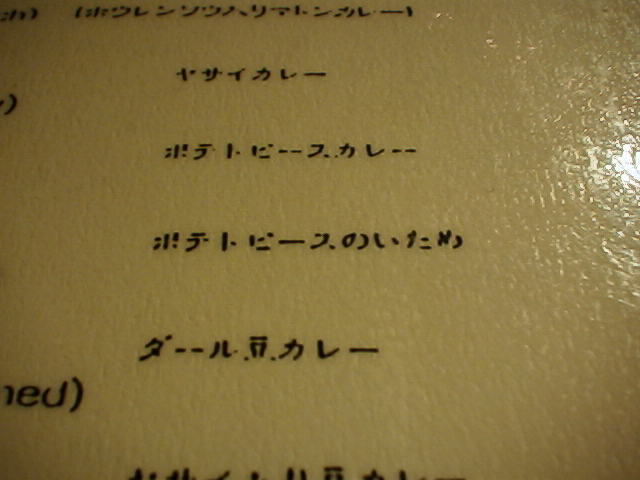 ch) (ホウレンソウ入リマトンカレー)
ヤサイカレー
y)
ポテトピースカレー
ポテトピースのいため
ダール豆カレー
ned)